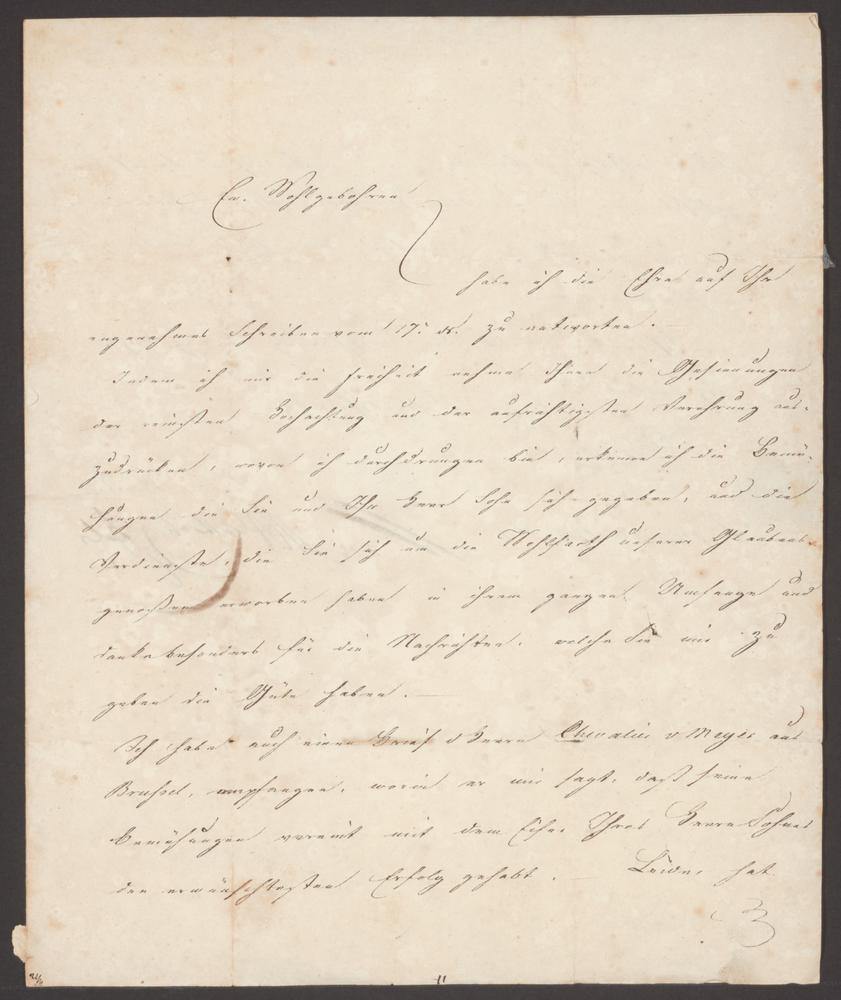 Ew. Wohlgebohren
habe ich die Ehre auf Ihr
angenehmes Schreiben vom 17. ds. zu antworten.
Indem ich mir die Freiheit nehme Ihnen die Gesinnungen
der reinsten Hochachtung und der aufrichtigsten Verehrung aus-
zudrücken, wovon ich durchdrungen bin, erkenne ich die Bemü-
hungen die Sie und Ihr Herr Sohn sich gegeben, und die
Verdienste, die Sie sich um die Wohlfarth unserer Glaubens-
genossen erworben haben in ihrem ganzen Umfange und
danke besonders für die Nachrichten, welche Sie mir zu
geben die Güte haben. —
Ich habe auch einen Brief v Herrn Chevalier v Meyer aus
Brussel, empfangen, worin er mir sagt, daß seine
Bemühungen vereint mit dem Eifer Ihres Herrn Sohnes
den erwünschtesten Erfolg gehabt. — Leider hat